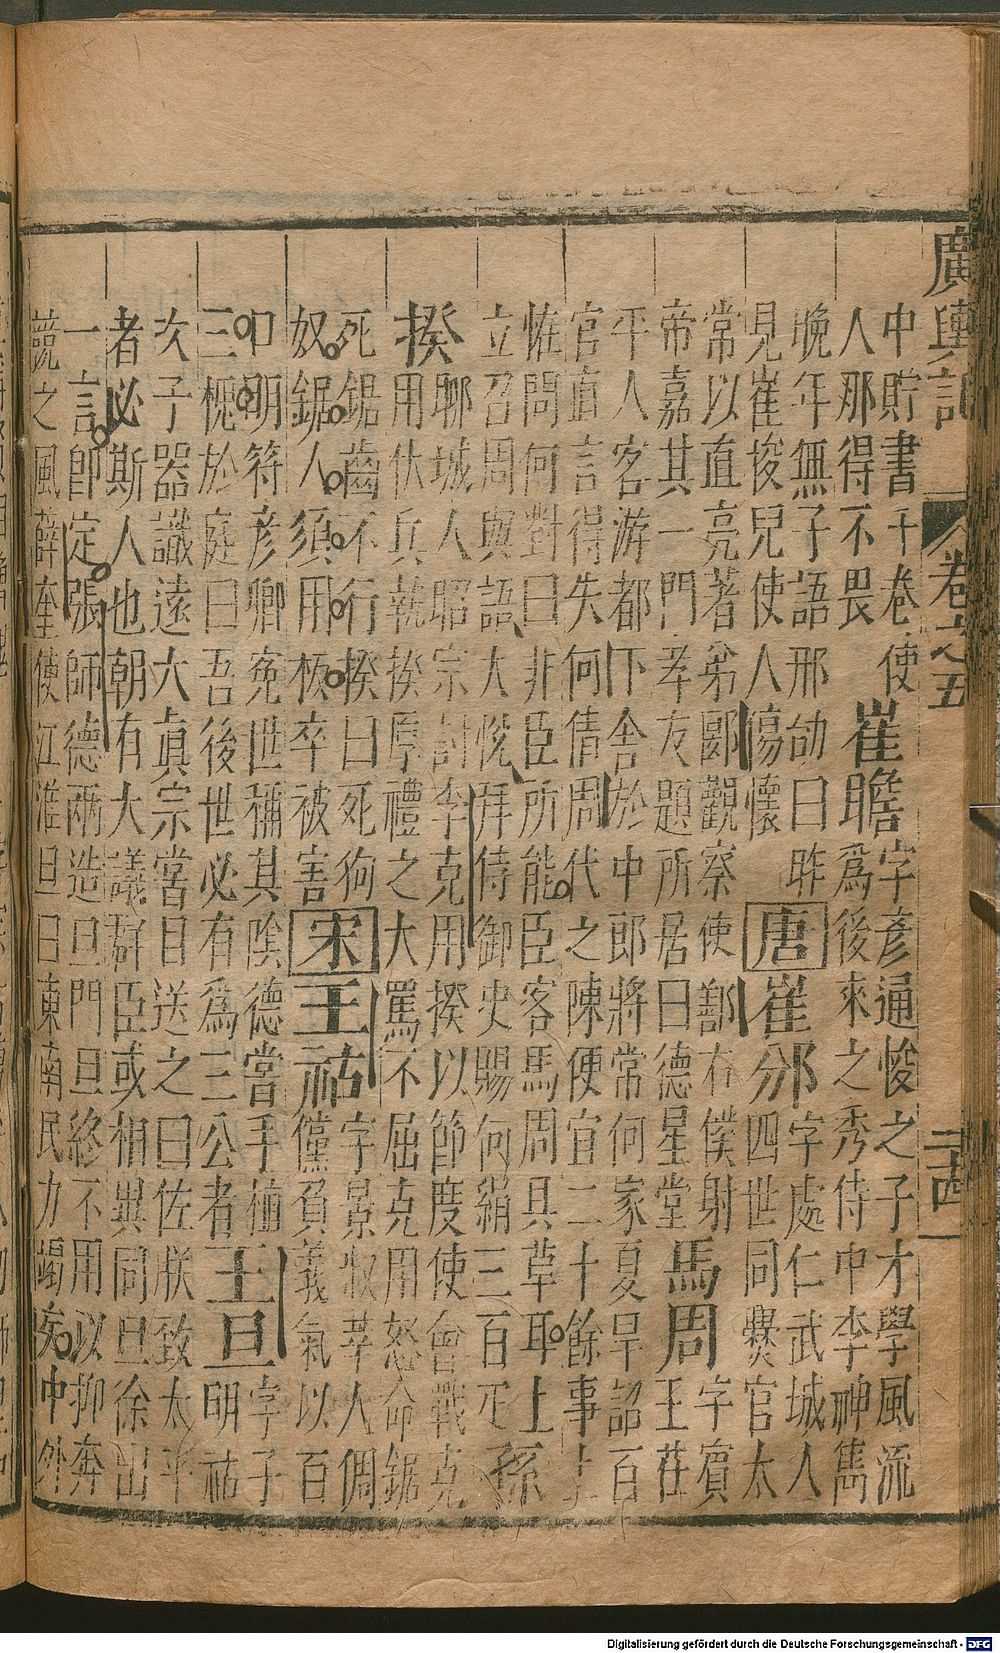 廣輿記 卷之五 二十四
中貯書千卷使
人那得不畏
崔瞻
字彥通㥄之子才學風流
為後來之秀侍中李神雋
晚年無子語邢劭曰昨
見崔㥄兒使人傷懷
唐
崔邠
字處仁武城人
四世同爨官太
常以直亮著弟郾觀察使鄯右僕射
帝嘉其一門孝友題所居曰德星堂
馬周
字賓
王茌
平人客游都下舍於中郎將常何家夏旱詔百
官直言得失何倩周代之陳便宜二十餘事上
惟問何對曰非臣所能臣客馬周具草耳上
立召周與語大悅拜侍御史賜何絹三百疋
孫
揆
聊城人昭宗討李克用揆以節度使會戰克
用伏兵執揆厚禮之大罵不屈克用怒命鋸
死鋸齒不行揆曰死狗
奴鋸人須用板卒被害
宋
王祜
字景叔莘人倜
儻負義氣以百
口明符彥卿寃世稱其陰德當手植
三槐於庭曰吾後世必有為三公者
王旦
字子
明祜
次子器識遠大真宗嘗目送之曰佐朕致太平
者必斯人也朝有大議群臣或相異同旦徐出
一言即定張師德兩造旦門旦終不用以抑奔
競之風薛奎使江淮旦曰東南民力竭矣中外
Digitalisierung gefördert durch die Deutsche Forschungsgemeinschaft - DFG